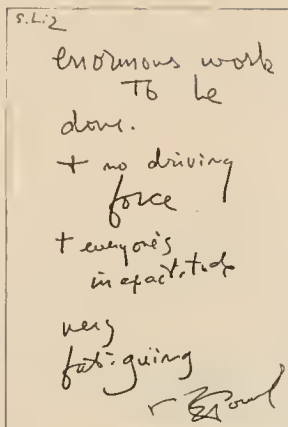 S.Liz
enormous work
To be
done.
+ no driving
force
+ everyone's
inexactitude
very
fatiguing
EPound